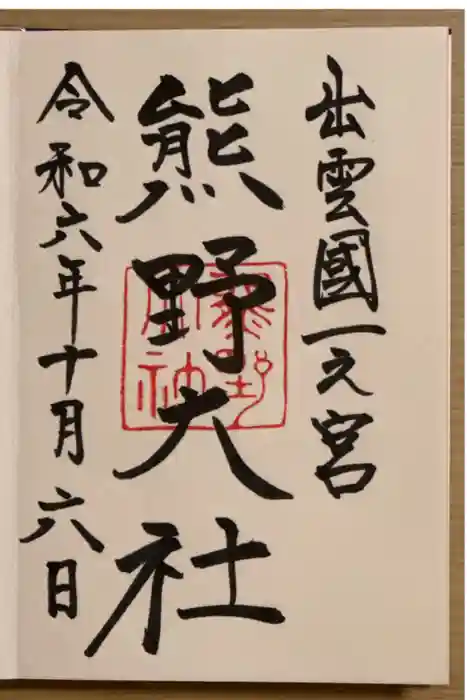 出雲國一之宮
熊野大社
令和六年十月六日
熊野大社